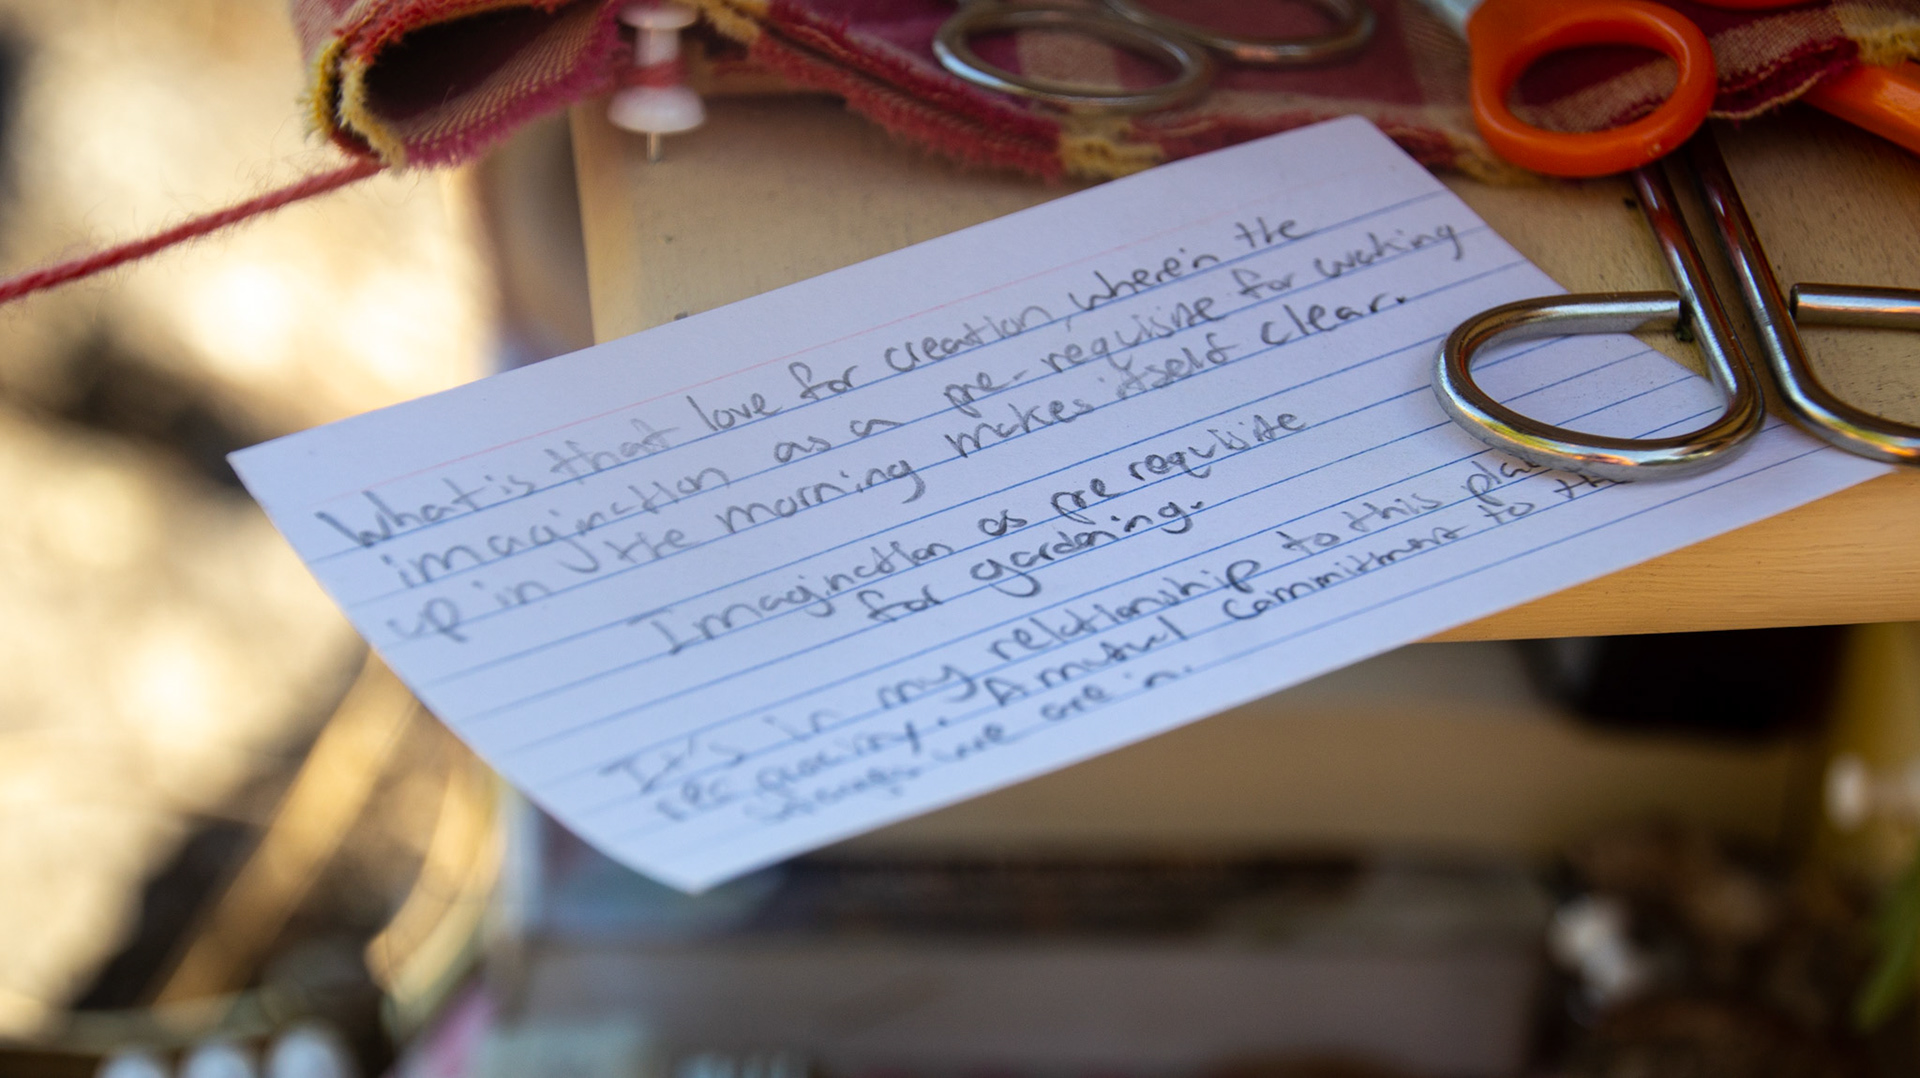 What is that love for creation, where'n the
imagination as a pre-requisite for waking
up in the morning makes itself clear.
Imagination as prerequisite
for gardening.
It's in my relationship to this
reciprocity. A mutual commitment to
we are in.